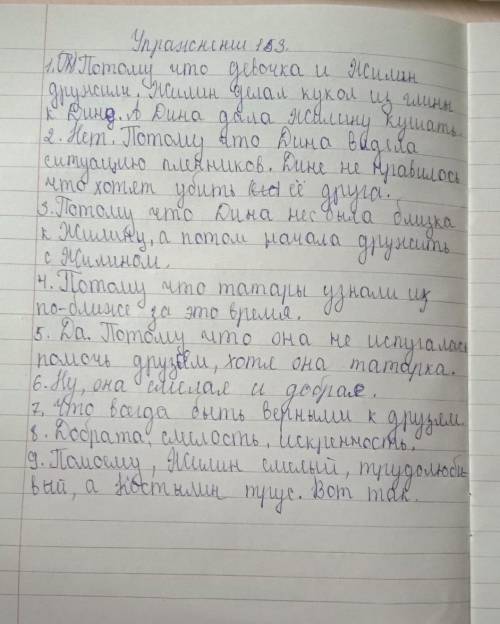 Упражнении 153.
1. Потому что девочка и Жилин
дружили. Жилин делал кукол из глины
к Дине. А Дина дала Жилину кушать.
2. Нет. Потому что Дина видела
ситуацию пленников. Дине не нравилось
что хотят убить её друга.
3. Потому что Дина не была близка
к Жилину, а потом начала дружить
с Жилином.
4. Потому что татары узнали их
по-ближе за это время.
5. Да. Потому что она не испугалась
помочь друзьям, хотя она татарка.
6. Ну, она смелая и добрая.
7. Что всегда быть верными к друзьям.
8. Добрата, смелость, искренность.
9. Помоему, Жилин смелый, трудолюби-
вый, а Костылин трус. Вот так.